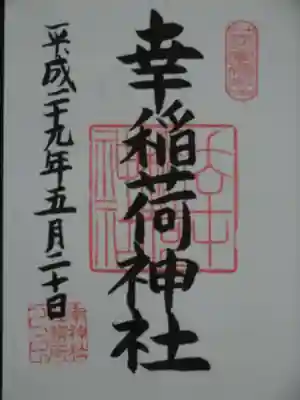 幸稲荷神社
平成二十九年五月二十日